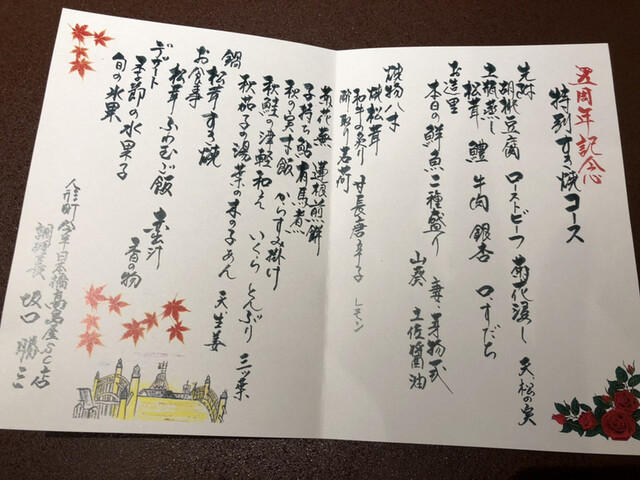 五周年記念
特別すき焼コース
先附
胡桃豆腐 ローストビーフ 菊花浸し 天松の実
土瓶蒸し
松茸 鱧 牛肉 銀杏 口、すだち
お造里
本日の鮮魚二種盛り 妻、芽物一式
山葵 土佐醤油
焼物八寸
焼松茸
和牛の炙り 甘長唐辛子 レモン
酢取り茗荷
菊花蕪 蓮根煎餅
子持ち鮎有馬煮
秋の実すし飯 からすみ掛け
秋鮭の津軽和え いくら とんぶり 三つ葉
秋茄子の湯葉の木の子あん 天、生姜
鍋
松茸すき焼
お食事
松茸ふわむじ飯 赤出汁
香の物
デザート
季節の水菓子
旬の水果
人形町今半日本橋高島屋S.C.店
調理長 坂口 勝三